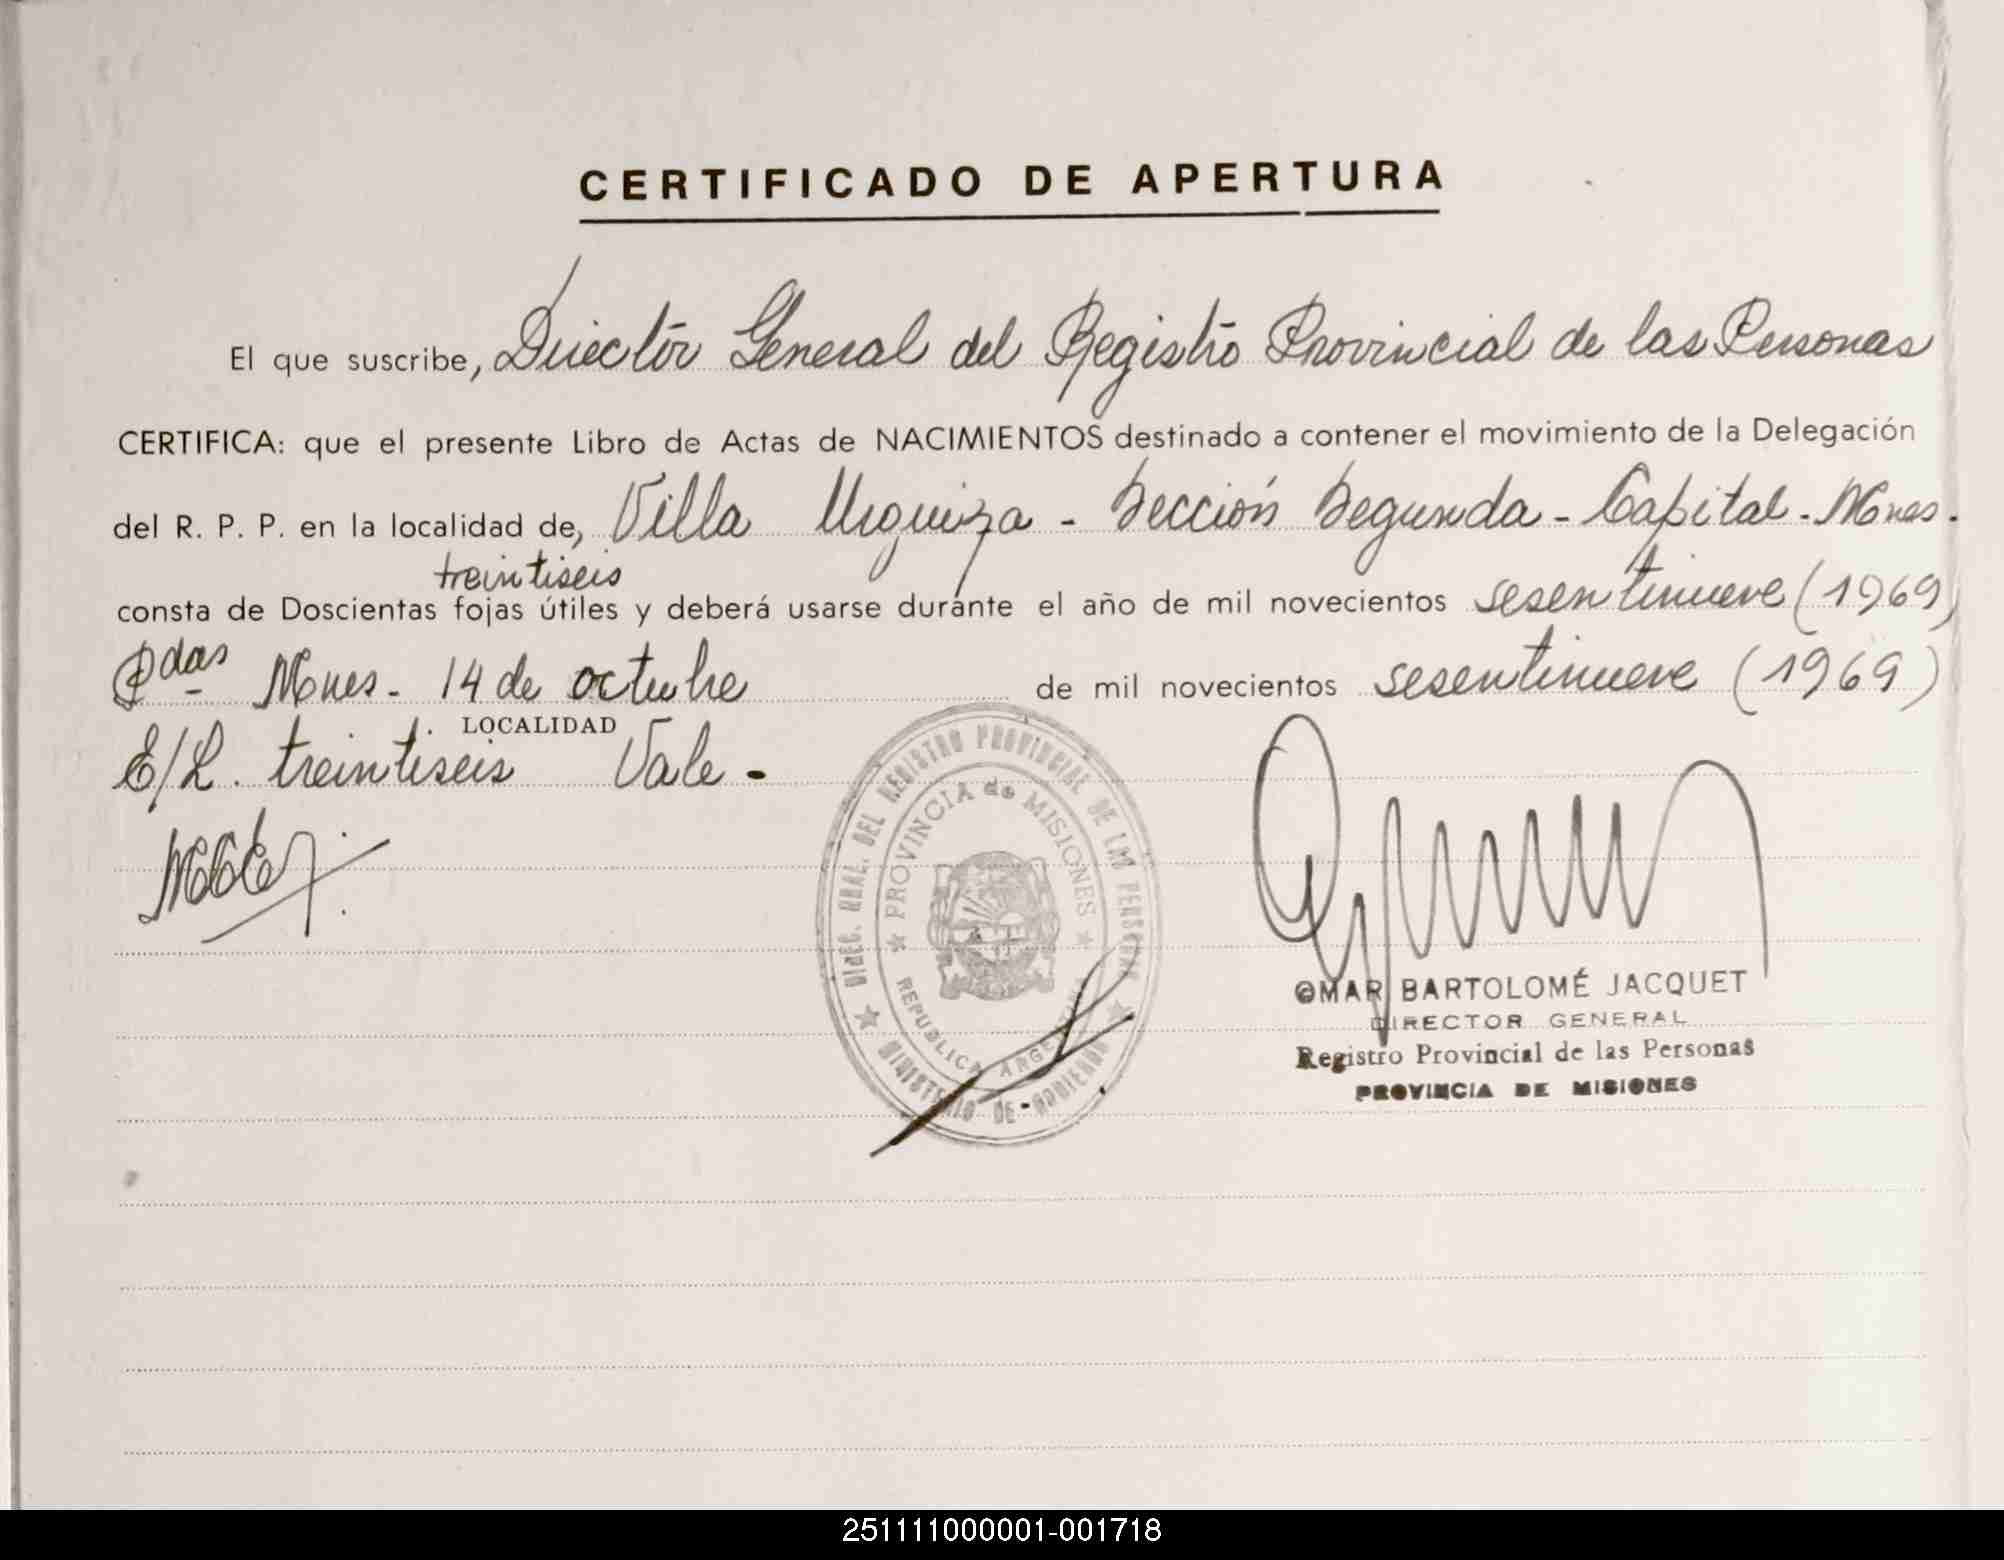 CERTIFICADO DE APERTURA
El que suscribe, Director General del Registro Provincial de las Personas
CERTIFICA: que el presente Libro de Actas de NACIMIENTOS destinado a contener el movimiento de la Delegación
del R. P. P. en la localidad de, Villa Urquiza - Sección Segunda - Capital - Mnes.
treintiseis
consta de Doscientas fojas útiles y deberá usarse durante el año de mil novecientos sesentinueve (1969)
Pdas Mnes. 14 de octubre de mil novecientos sesentinueve (1969)
LOCALIDAD
E/L. treintiseis Vale -
DIREC. GRAL. DEL REGISTRO PROVINCIAL DE LAS PERSONAS
PROVINCIA de MISIONES
REPUBLICA ARGENTINA
MINISTERIO DE GOBIERNO
OMAR BARTOLOMÉ JACQUET
DIRECTOR GENERAL
Registro Provincial de las Personas
PROVINCIA DE MISIONES
251111000001-001718